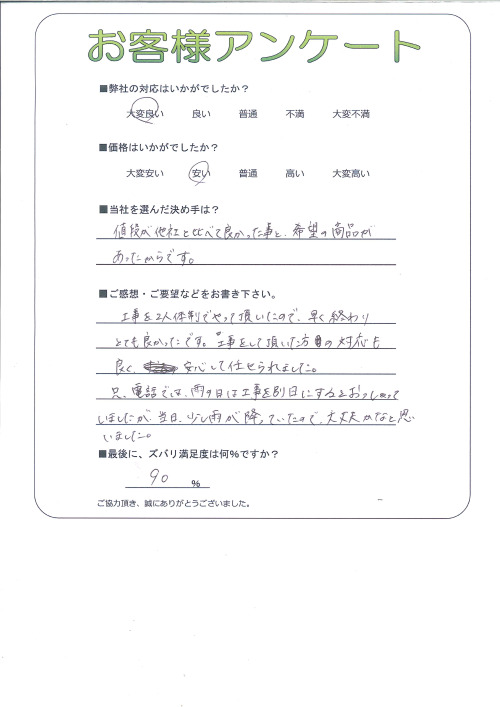 お客様アンケート
■弊社の対応はいかがでしたか？
大変良い 良い 普通 不満 大変不満
■価格はいかがでしたか？
大変安い 安い 普通 高い 大変高い
■当社を選んだ決め手は？
値段が他社と比べて良かった事と、希望の商品が
あったからです。
■ご感想・ご要望などをお書き下さい。
工事を2人体制でやって頂いたので、早く終わり
とても良かったです。工事をして頂いた方の対応も
良く、安心して任せられました。
只、電話では、雨の日は工事を別日にするとおっしゃって
いましたが、当日、少し雨が降っていたので、大丈夫かなと思い
いました。
■最後に、ズバリ満足度は何%ですか？
90 %
ご協力頂き、誠にありがとうございました。